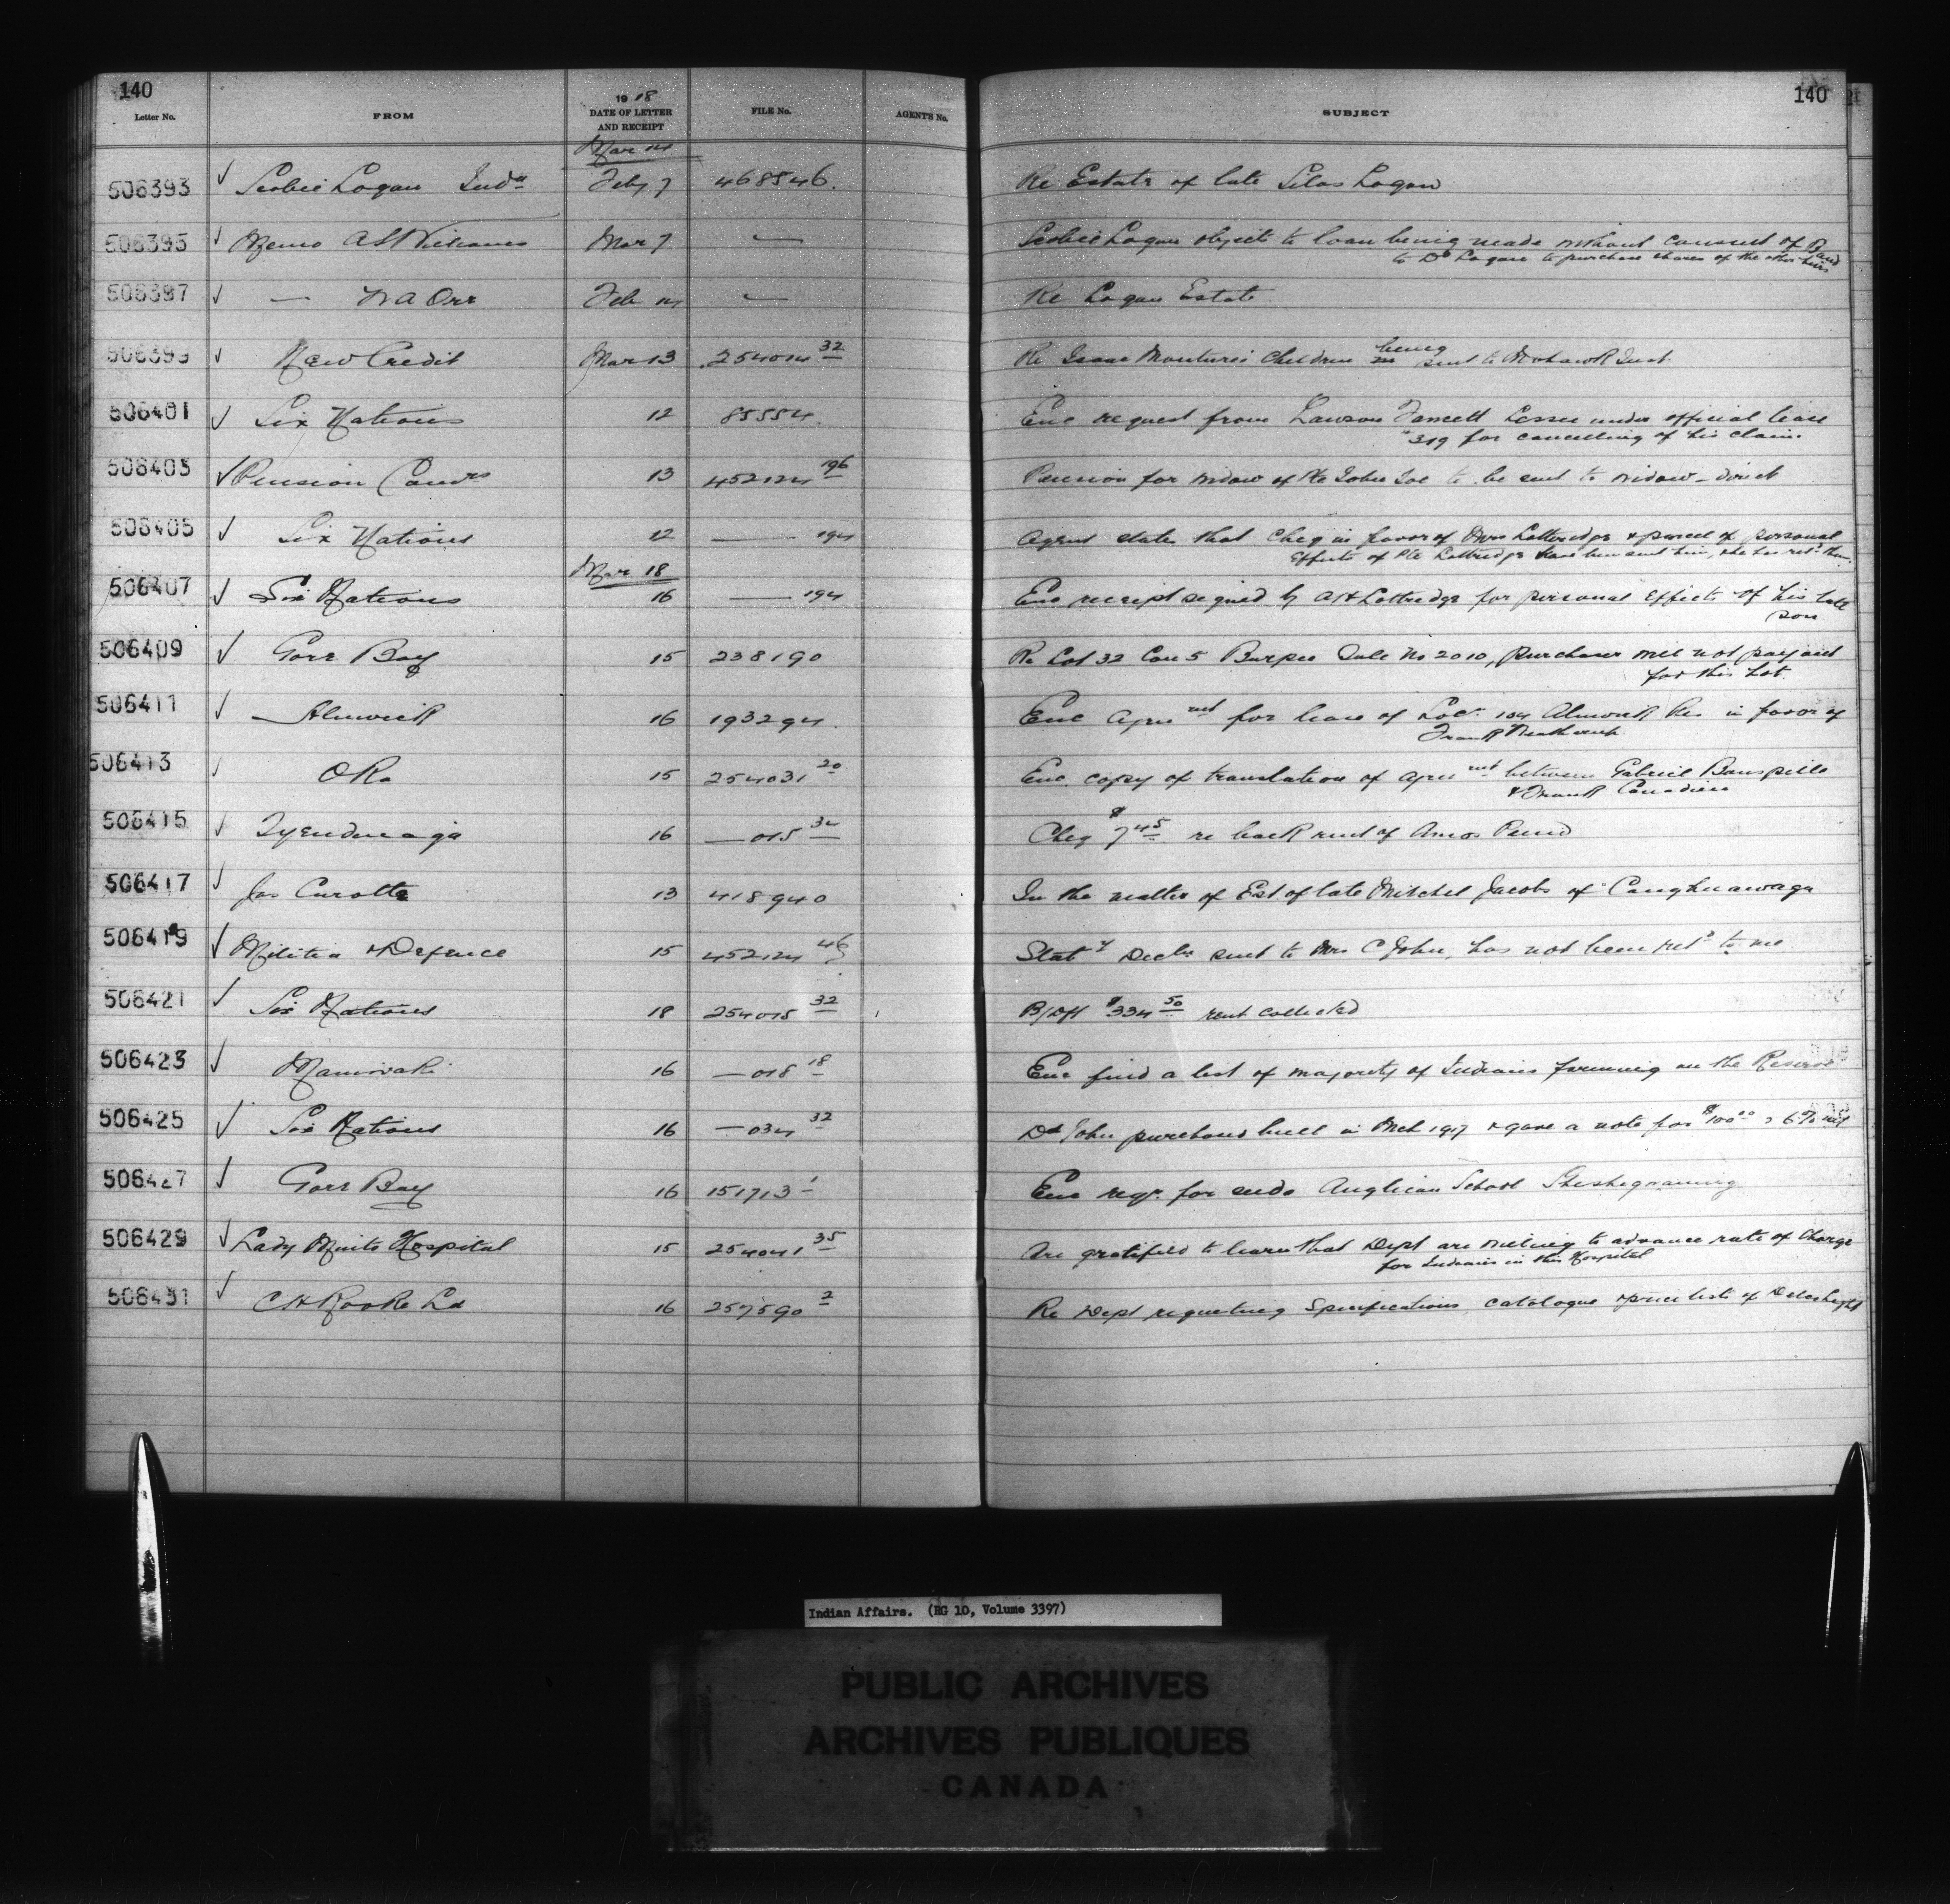 140
140
Letter No. FROM 1918 DATE OF LETTER AND RECEIPT FILE No. AGENTS No. SUBJECT
Mar 14
506393 ✓ Scobie Logan Indn Feby 7 468546. Re Estate of late Silas Logan
506395 ✓ Memo A S Williams Mar 7 — Scobie Logan objects to loan being made without consent of Band
to Dd Logan to purchase shares of the other heirs
506397 ✓ — W A Orr Feb 14 — Re Logan Estate
506399 ✓ New Credit Mar 13 254014 32 Re Isaac Montures Children being sent to Mohawk Inst.
506401 ✓ Six Nations 12 85554. Enc request from Lawson Lessee under official lease
319 for cancelling of his claim.
506403 ✓ Pension Comrs 13 452124 196 Pension for widow of Pte John Joe to be sent to widow - direct
506405 ✓ Six Nations 12 — 194 Agent states that Cheq in favor of Mrs Lottridge & parcel of personal
Effects of Pte Lottridge have been sent him, he has retd them.
Mar 18
506407 ✓ Six Nations 16 — 194 Enc receipt signed by A H Lottridge for personal effects of his late
son
506409 ✓ Gore Bay 15 238190 Re Lot 32 Con 5 Burpee Sale No 2010, purchaser will not pay
for this Lot.
506411 ✓ Alnwick 16 193294. Enc Agreemt for lease of Loc. 104 Alnwick Res in favor of
Frank
506413 ✓ Oka 15 254031 20 Enc. copy of translation of agreemt between Gabriel
& Frank Canadien
506415 ✓ Tyendinaga 16 — 015 34 Cheq $7 45 re back rent of Amos
506417 ✓ Jos Curotte 13 418940 In the matter of Est. of late Mitchel Jacobs of Caughnawaga
506419 ✓ Militia & Defence 15 452124 46 Staty Decln sent to Mrs C John, has not been retd to me
506421 ✓ Six Nations 18 254015 32 B/Dft $334 50 rent collected
506423 ✓ Maniwaki 16 — 018 18 Enc find a list of majority of Indians farming on the Reserve
506425 ✓ Six Nations 16 — 034 32 Dd John purchased bull in Mch 1917 & gave a note for $100 00 6% int
506427 ✓ Gore Bay 16 151713 1 Enc reqn. for seeds Anglican School Sheshegwaning
506429 ✓ Lady Minto Hospital 15 254041 35 Are gratified to learn that Dept are willing to advance rate of charge
for Indians in this Hospital
506431 ✓ C H Rooke Ld 16 257590 2 Re Dept requesting Specifications catalogue & price list of Delco light
Indian Affairs. (RG 10, Volume 3397)
PUBLIC ARCHIVES
ARCHIVES PUBLIQUES
CANADA